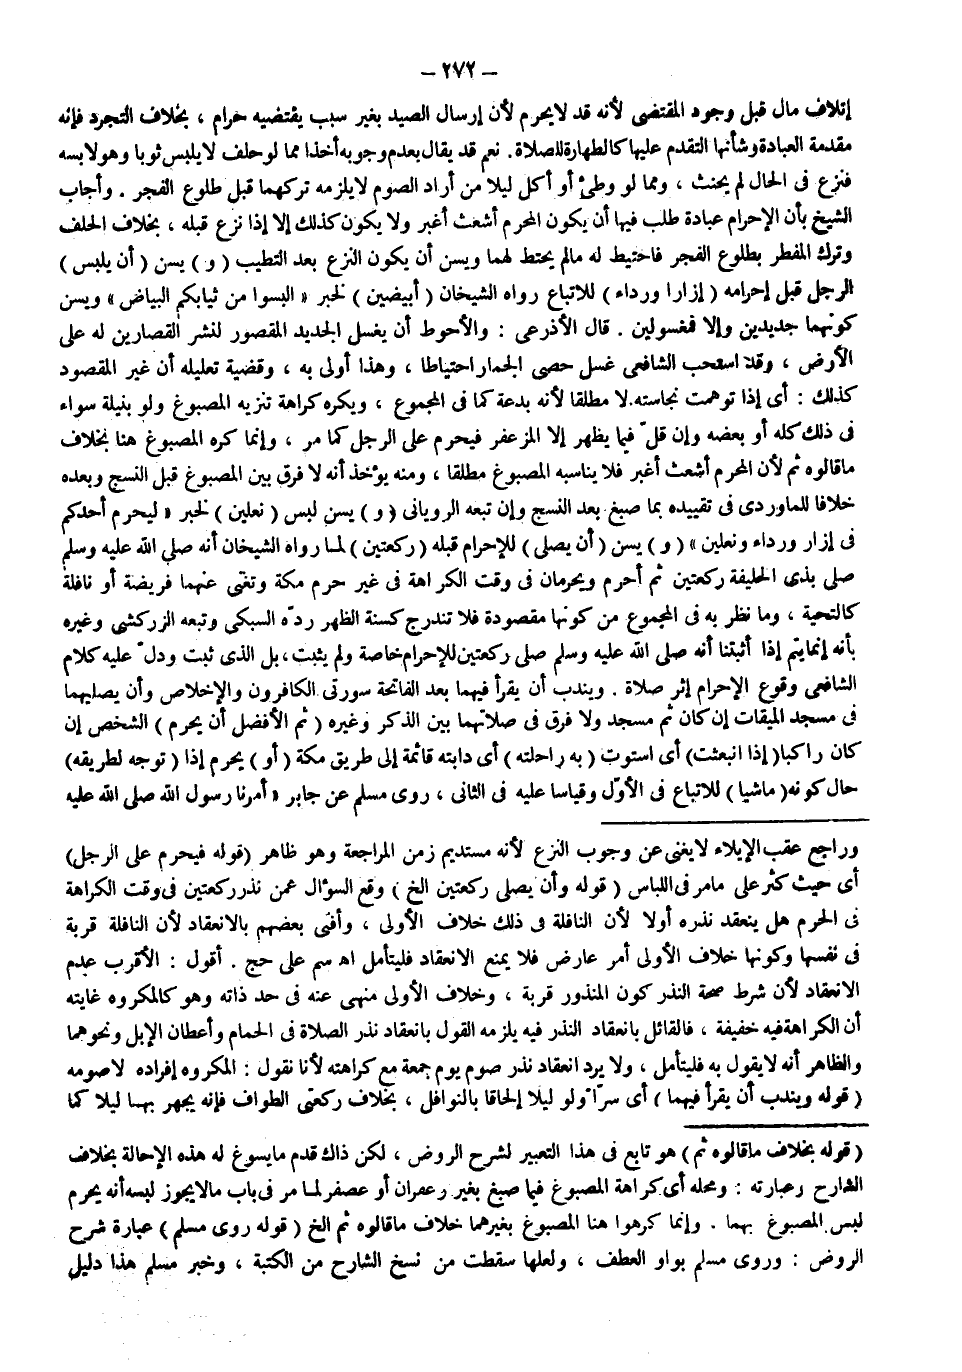 – ٢٧٢ –
إتلاف مال قبل وجود المقتضى لأنه قد لايحرم لأن إرسال الصيد بغير سبب يقتضيه حرام ، بخلاف التجرد فإنه
مقدمة العبادة وشأنها التقدم عليها كالطهارة للصلاة. نعم قد يقال بعدم وجوبه أخذا مما لو حلف لايلبس ثوبا وهو لابسه
فنزع فى الحال لم يحنث ، ومما لو وطئ أو أكل ليلا من أراد الصوم لايلزمه تركهما قبل طلوع الفجر . وأجاب
الشيخ بأن الإحرام عبادة طلب فيها أن يكون المحرم أشعث أغبر ولا يكون كذلك إلا إذا نزع قبله ، بخلاف الحلف
وترك المفطر بطلوع الفجر فاحتيط له مالم يحتط لهما ويسن أن يكون النزع بعد التطيب ( و ) يسن ( أن يلبس )
الرجل قبل إحرامه ( إزارا ورداء ) للاتباع رواه الشيخان ( أبيضين ) لخبر « البسوا من ثيابكم البياض » ويسن
كونهما جديدين وإلا فمغسولين . قال الأذرعى : والأحوط أن يغسل الجديد المقصور لنشر القصارين له على
الأرض ، وقد استحب الشافعى غسل حصى الجمار احتياطا ، وهذا أولى به ، وقضية تعليله أن غير المقصود
كذلك : أى إذا توهمت نجاسته. لا مطلقا لأنه بدعة كما فى المجموع ، ويكره كراهة تنزيه المصبوغ ولو بنيلة سواء
فى ذلك كله أو بعضه وإن قلّ فيما يظهر إلا المزعفر فيحرم على الرجل كما مر ، وإنما كره المصبوغ هنا بخلاف
ماقالوه ثم لأن المحرم أشعث أغبر فلا يناسبه المصبوغ مطلقا ، ومنه يؤخذ أنه لا فرق بين المصبوغ قبل النسج وبعده
خلافا للماوردى فى تقييده بما صبغ بعد النسج وإن تبعه الرويانى ( و ) يسن لبس ( نعلين ) لخبر « ليحرم أحدكم
فى إزار ورداء ونعلين » ( و ) يسن ( أن يصلى ) للإحرام قبله ( ركعتين ) لما رواه الشيخان أنه صلى الله عليه وسلم
صلى بذى الحليفة ركعتين ثم أحرم ويحرمان فى وقت الكراهة فى غير حرم مكة وتغنى عنهما فريضة أو نافلة
كالتحية ، وما نظر به فى المجموع من كونها مقصودة فلا تندرج كسنة الظهر ردّه السبكى وتبعه الزركشى وغيره
بأنه إنمايتم إذا أثبتنا أنه صلى الله عليه وسلم صلى ركعتين للإحرام خاصة ولم يثبت، بل الذى ثبت ودلّ عليه كلام
الشافعى وقوع الإحرام إثر صلاة . ويندب أن يقرأ فيهما بعد الفاتحة سورتى الكافرون والإخلاص وأن يصليهما
فى مسجد الميقات إن كان ثم مسجد ولا فرق فى صلاتهما بين الذكر وغيره ( ثم الأفضل أن يحرم ) الشخص إن
كان راكبا( إذا انبعثت) أى استوت ( به راحلته ) أى دابته قائمة إلى طريق مكة ( أو ) يحرم إذا ( توجه لطريقه)
حال كونه( ماشيا ) للاتباع فى الأوّل وقياسا عليه فى الثانى ، روى مسلم عن جابر « أمرنا رسول الله صلى الله عليه
وراجع عقب الإيلاء لايغنى عن وجوب النزع لأنه مستديم زمن المراجعة وهو ظاهر (قوله فيحرم على الرجل)
أى حيث كثر على مامر فى اللباس ( قوله وأن يصلى ركعتين الخ ) وقع السؤال عمن نذر ركعتين فى وقت الكراهة
فى الحرم هل ينعقد نذره أولا لأن النافلة فى ذلك خلاف الأولى ، وأفتى بعضهم بالانعقاد لأن النافلة قربة
فى نفسها وكونها خلاف الأولى أمر عارض فلا يمنع الانعقاد فليتأمل اه سم على حج . أقول : الأقرب عدم
الانعقاد لأن شرط صحة النذر كون المنذور قربة ، وخلاف الأولى منهى عنه فى حد ذاته وهو كالمكروه غايته
أن الكراهة فيه خفيفة ، فالقائل بانعقاد النذر فيه يلزمه القول بانعقاد نذر الصلاة فى الحمام وأعطان الإبل ونحوهما
والظاهر أنه لايقول به فليتأمل ، ولا يرد انعقاد نذر صوم يوم جمعة مع كراهته لأنا نقول : المكروه إفراده لاصومه
( قوله ويندب أن يقرأ فيهما ) أى سرّا ولو ليلا إلحاقا بالنوافل ، بخلاف ركعتى الطواف فإنه يجهر بهما ليلا كما
( قوله بخلاف ماقالوه ثم ) هو تابع فى هذا التعبير لشرح الروض ، لكن ذاك قدم مايسوغ له هذه الإحالة بخلاف
الشارح وعبارته : ومحله أى كراهة المصبوغ فيما صبغ بغير زعفران أو عصفر لما مر فى باب مالايجوز لبسه أنه يحرم
لبس المصبوغ بهما . وإنما كرهوا هنا المصبوغ بغيرهما خلاف ماقالوه ثم الخ ( قوله روى مسلم ) عبارة شرح
الروض : وروى مسلم بواو العطف ، ولعلها سقطت من نسخ الشارح من الكتبة ، وخبر مسلم هذا دليل